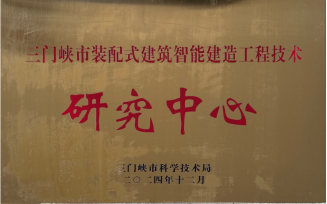 三门峡市装配式建筑智能建造工程技术
研究中心
三门峡市科学技术局
二〇二四年十二月